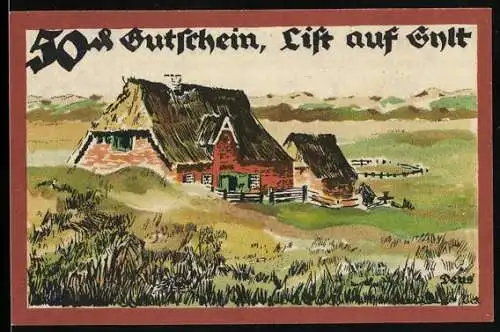 50 ₰ Gutschein, List auf Sylt
Deus